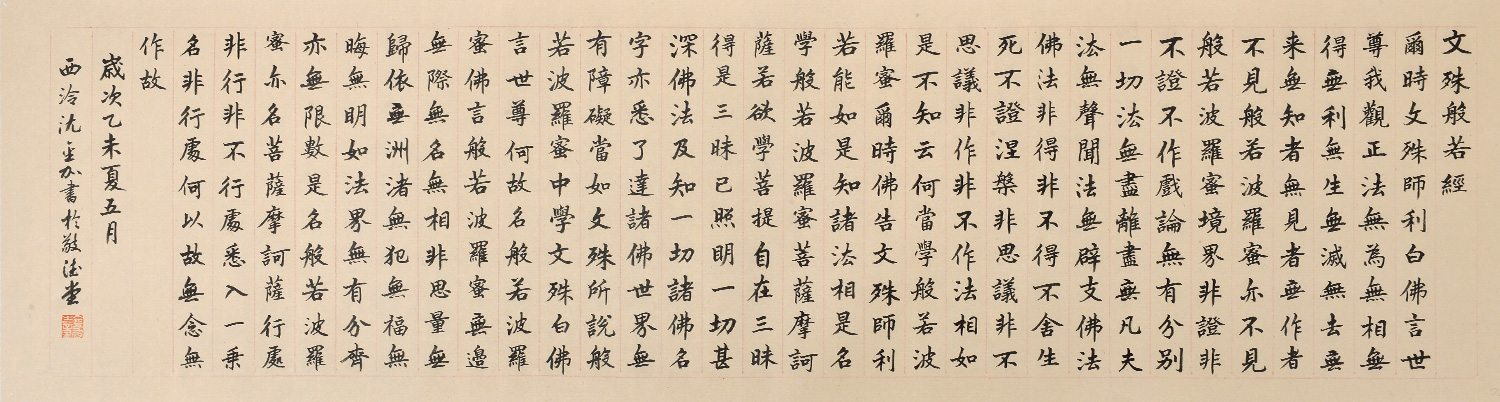 文殊般若經
爾時文殊師利白佛言世
尊我觀正法無為無相無
得無利無生無滅無去無
来無知者無見者無作者
不見般若波羅蜜亦不見
般若波羅蜜境界非證非
不證不作戲論無有分別
一切法無盡離盡無凡夫
法無聲聞法無辟支佛法
佛法非得非不得不舍生
死不證涅槃非思議非不
思議非作非不作法相如
是不知云何當學般若波
羅蜜爾時佛告文殊師利
若能如是知諸法相是名
學般若波羅蜜菩薩摩訶
薩若欲學菩提自在三昧
得是三昧已照明一切甚
深佛法及知一切諸佛名
字亦悉了達諸佛世界無
有障礙當如文殊所說般
若波羅蜜中學文殊白佛
言世尊何故名般若波羅
蜜佛言般若波羅蜜無邊
無際無名無相非思量無
歸依無洲渚無犯無福無
晦無明如法界無有分齊
亦無限數是名般若波羅
蜜亦名菩薩摩訶薩行處
非行非不行處悉入一乗
名非行處何以故無念無
作故
歲次乙未夏五月
西泠沈書於敬德堂